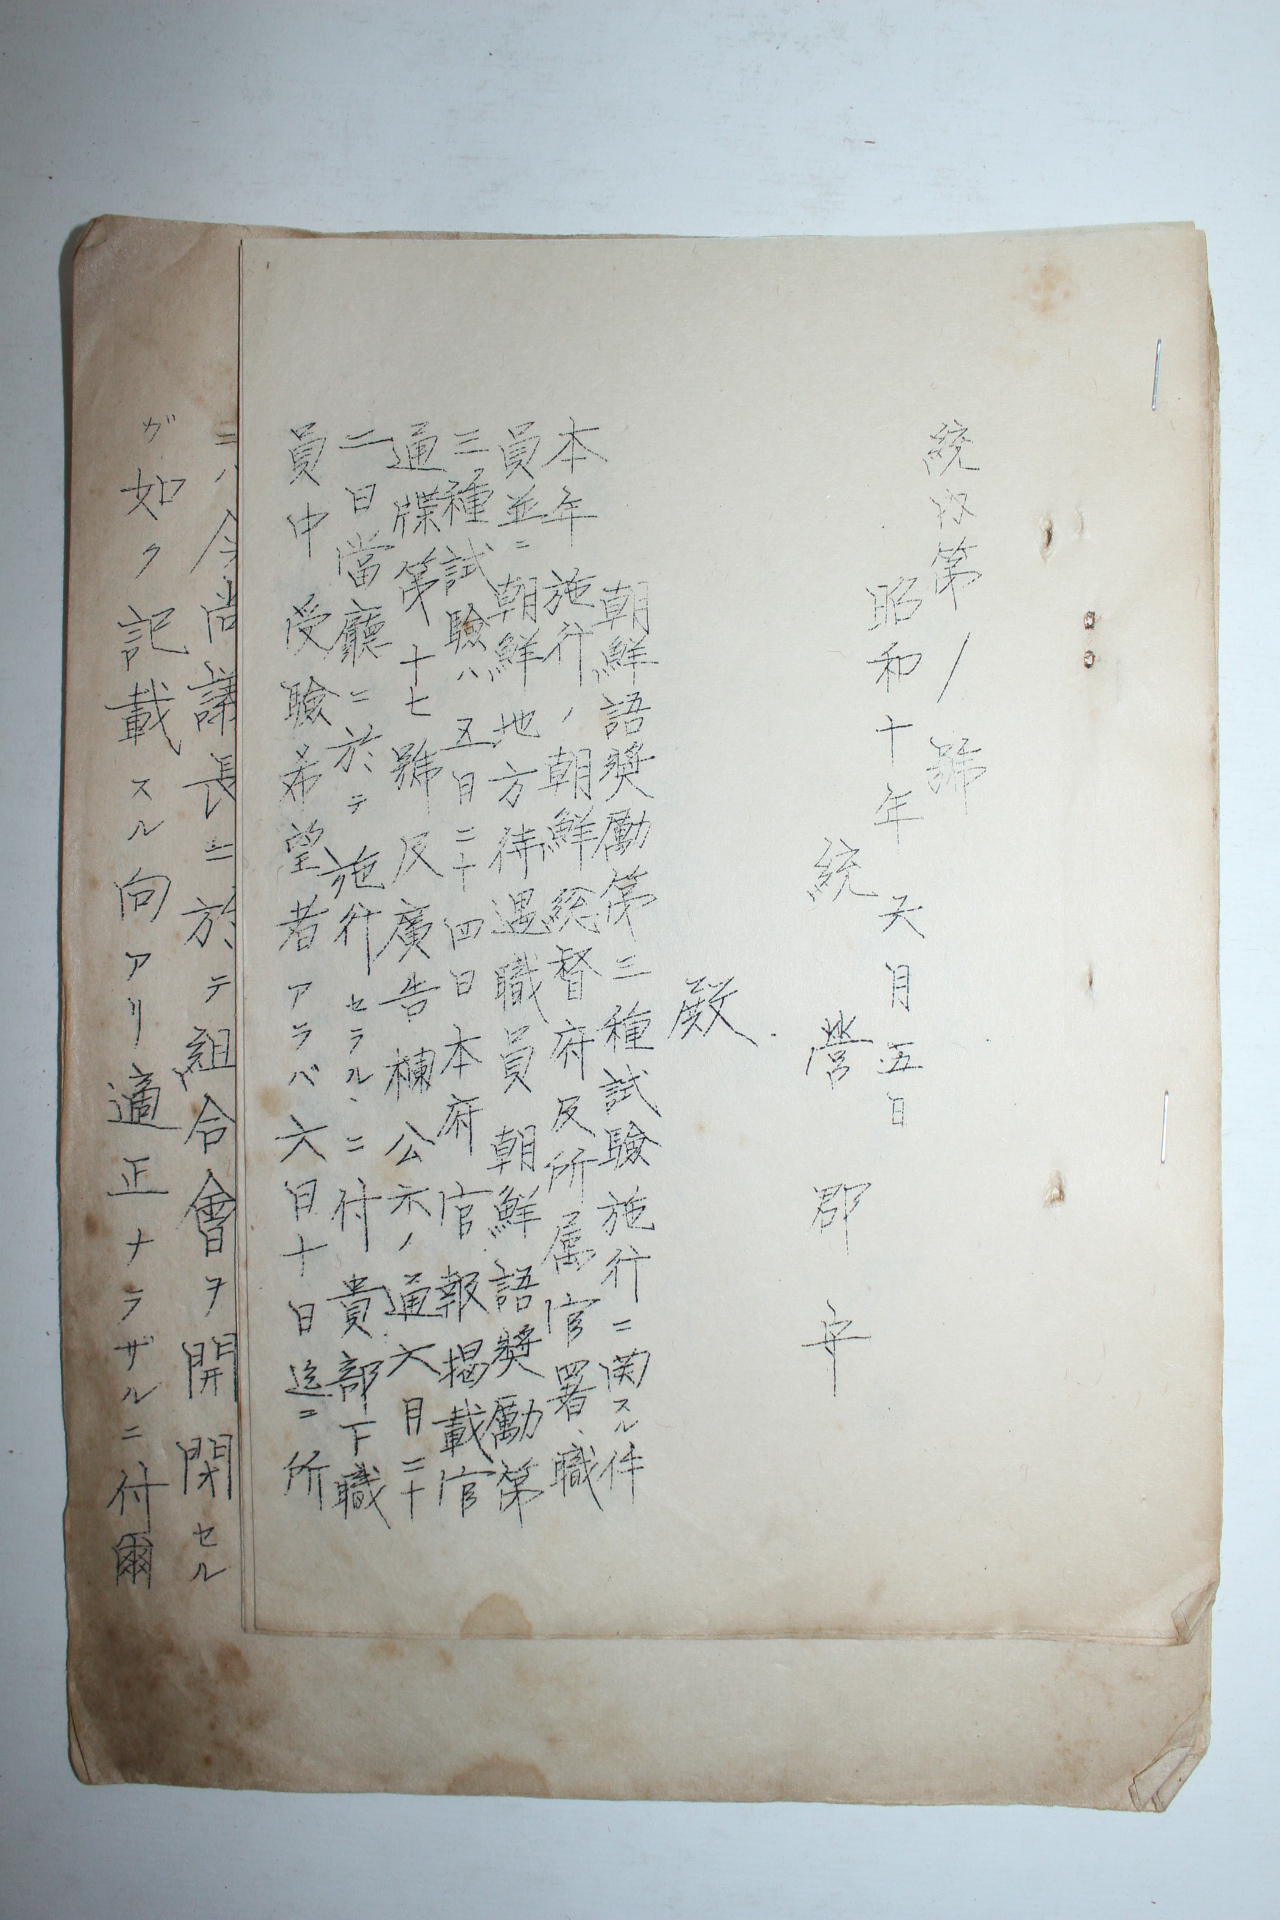 統収第1號
昭和十年六月五日
統營郡守
殿
朝鮮語奬励第三種試驗施行ニ関スル件
本年施行ノ朝鮮総督府及所属官署職
員並ニ朝鮮地方待遇職員朝鮮語奬勵第
三種試驗ハ五日二十四日本府官報掲載官
通牒第十七號及廣告欄公示ノ通六月二十
二日當廳ニ於テ施行セラルヽニ付貴部下職
員中受驗希望者アラバ六日十日迄ニ所
ニハ今尚議長ニ於テ組合會ヲ開閉セル
ガ如ク記載スル向アリ適正ナラザルニ付爾